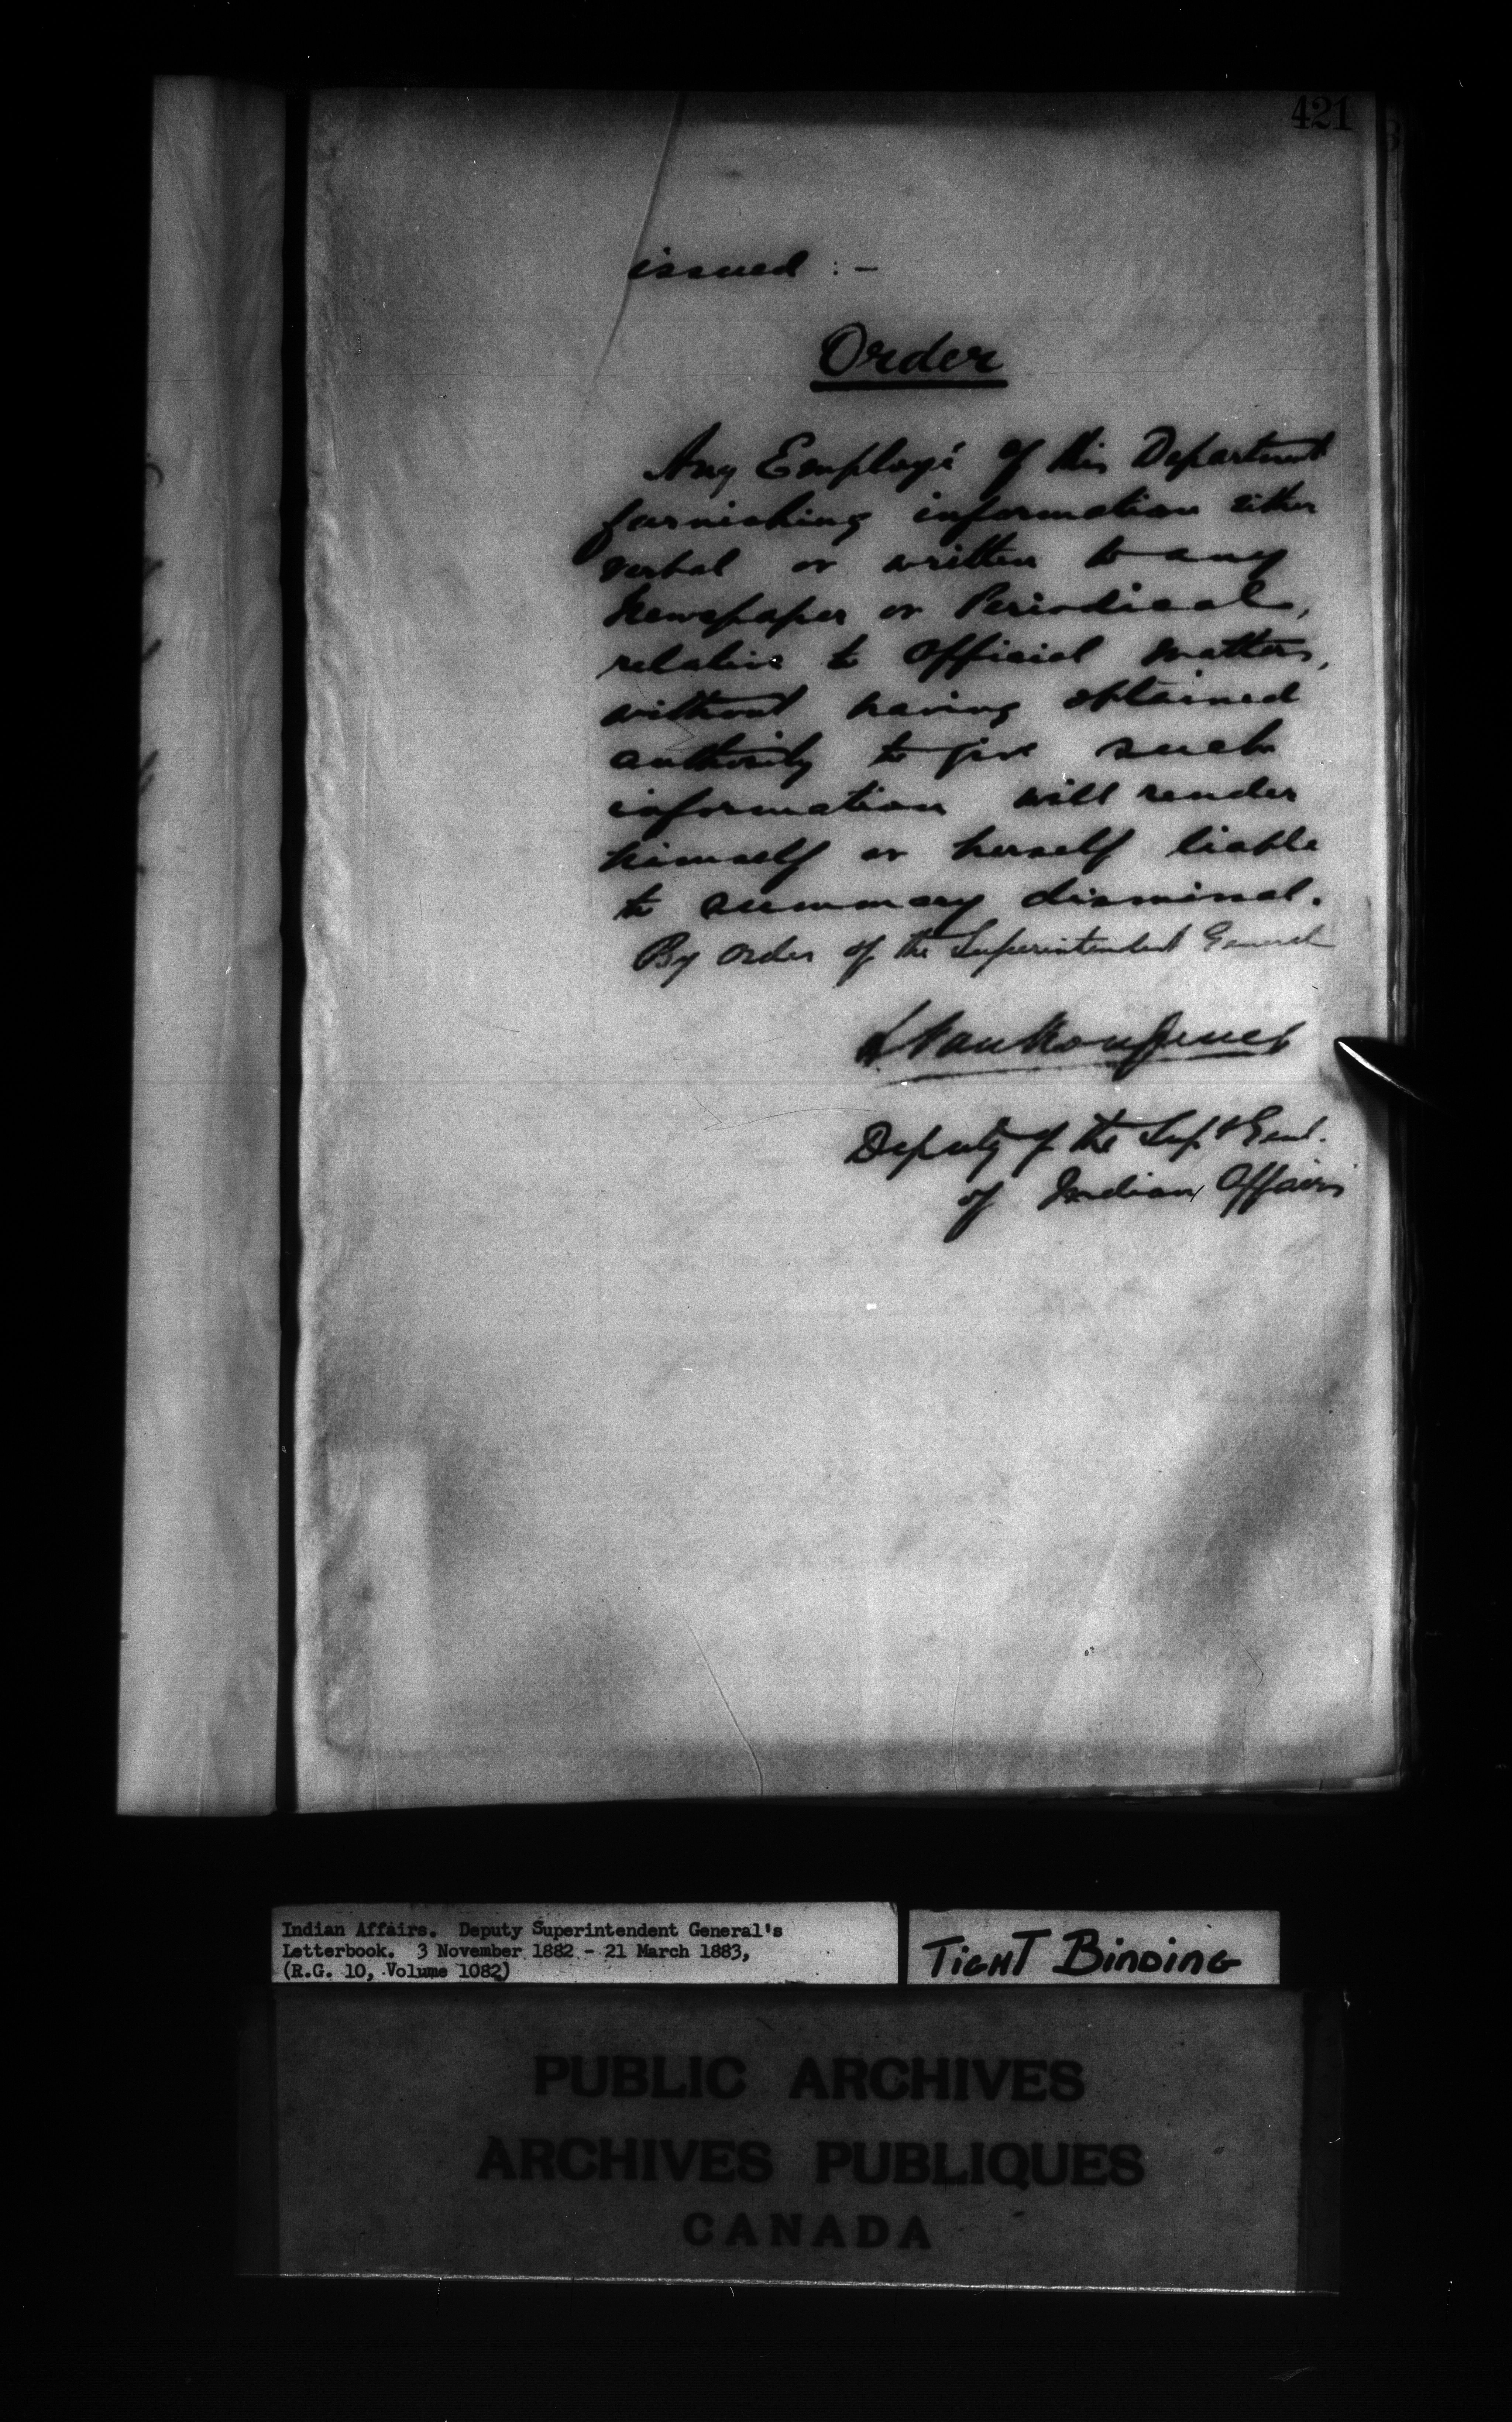 421
issued : -
Order
Any Employé of this Department
furnishing information either
verbal or written to any
Newspaper or Periodical,
relative to Official matters,
without having obtained
authority to give such
information will render
himself or herself liable
to summary dismissal.
By order of the Superintendent General
L VanKoughnet
Deputy of the Supt Genl.
of Indian Affairs
Indian Affairs. Deputy Superintendent General's
Letterbook. 3 November 1882 - 21 March 1883,
(R.G. 10, Volume 1082)
TIGHT BINDING
PUBLIC ARCHIVES
ARCHIVES PUBLIQUES
CANADA